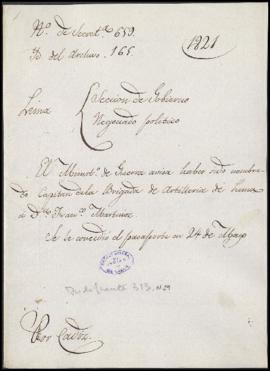 N.º de Secret.ª 659.
Yd. del Archivo 165.
1821
Lima
Seccion de Gobierno
Negociado politico
El Minist.º de Guerra avisa haber sido nombra-
do Capitan de la Brigada de Artilleria de Lima
á D.n Fran.co Martinez
Se le concedió el pasaporte en 24 de Mayo
Indiferente 313, N 29
Por Cadiz.